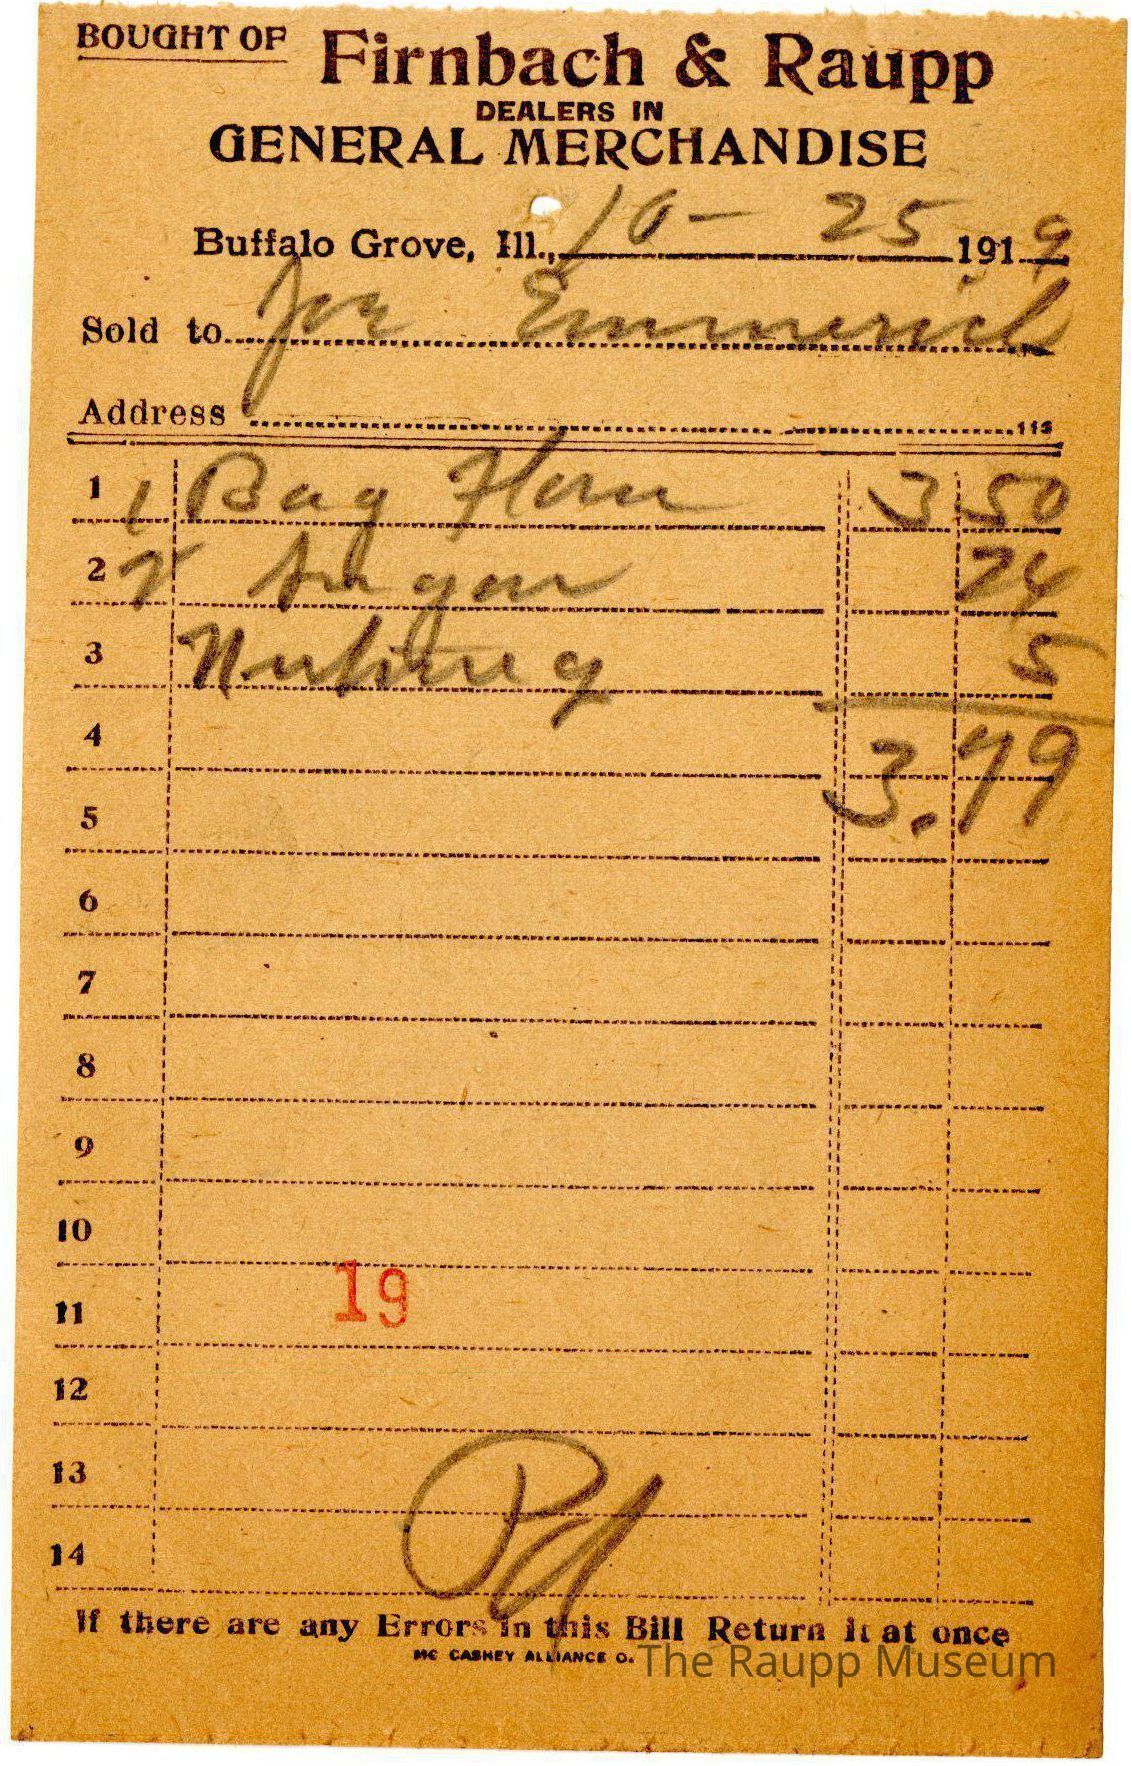 BOUGHT OF Firnbach & Raupp
DEALERS IN
GENERAL MERCHANDISE
Buffalo Grove, Ill., 10-25 1919
Sold to Joe Emmerich
Address
113
1 1 Bag Flour 3 50
2 2 Sugar 24
3 Nutmeg 5
4 3.79
5
6
7
8
9
10
19
11
12
13
Pd
14
If there are any Errors in this Bill Return it at once
MC CASKEY ALLIANCE O.
The Raupp Museum